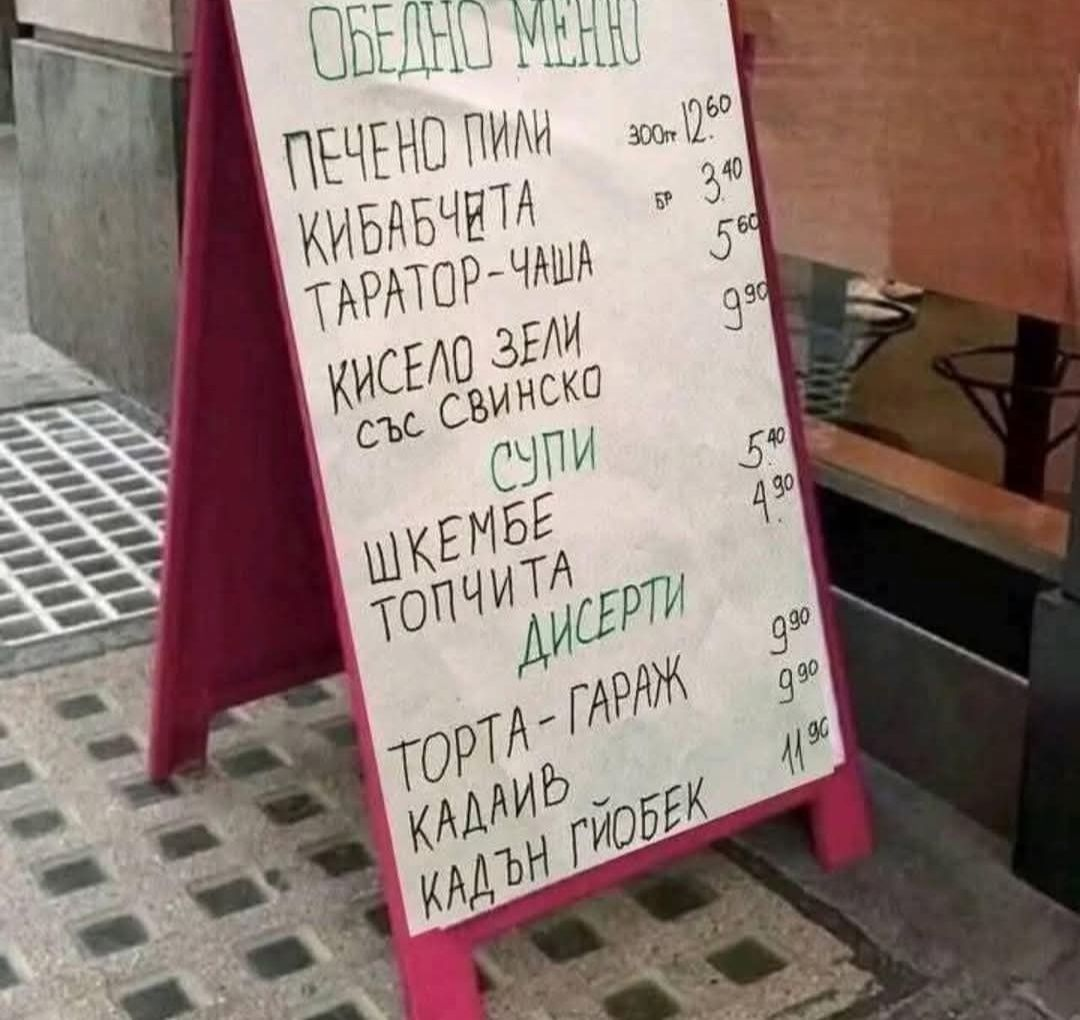 ОБЕДНО МЕНЮ
ПЕЧЕНО ПИЛИ 300гг 12.60
КИБАБЧЕТА БР 3.40
ТАРАТОР-ЧАША 5 60
КИСЕЛО ЗЕЛИ 9 90
СЪС СВИНСКО
СУПИ
ШКЕМБЕ 5.40
ТОПЧИТА 4.90
ДИСЕРТИ
ТОРТА-ГАРАЖ 9 90
КАДАИВ 9 90
КАДЪН ГЙОБЕК 11 90